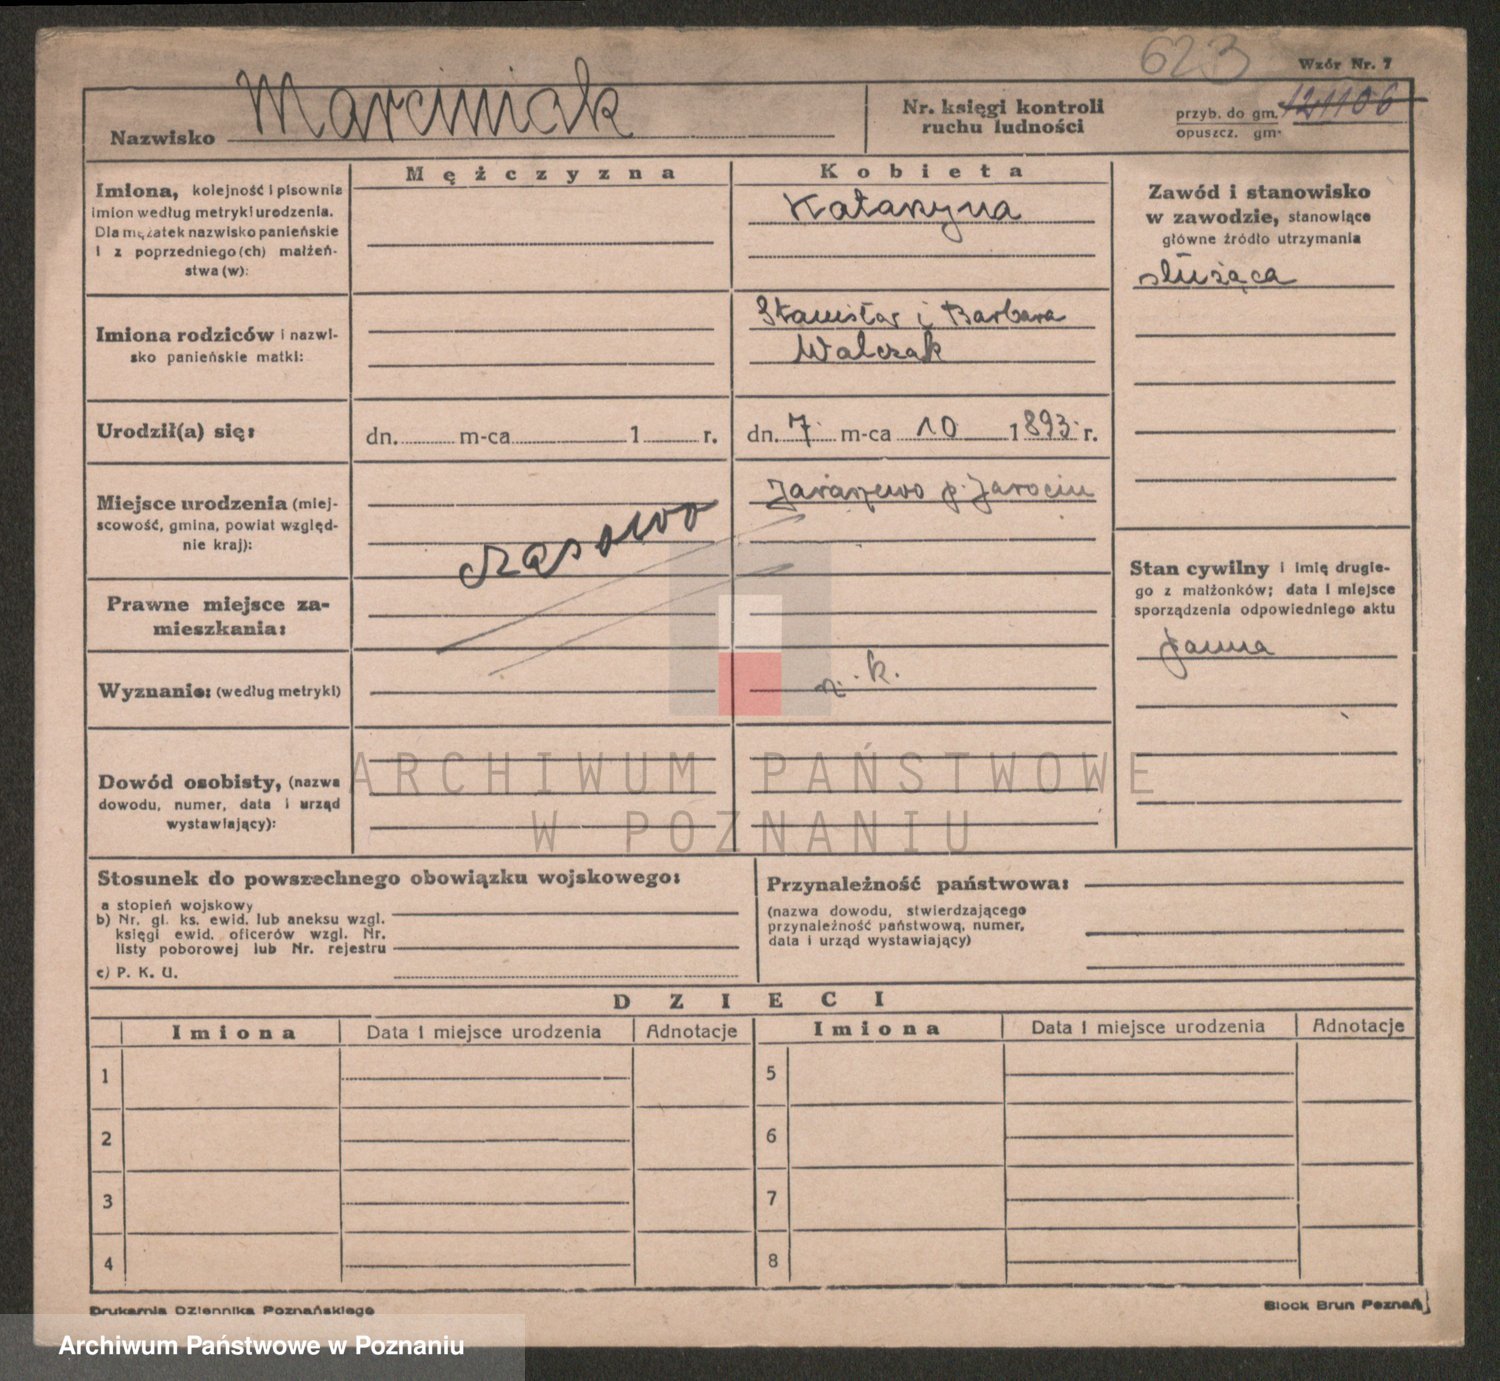 623
Wzór Nr. 7
Nazwisko Marciniak
Nr. księgi kontroli
ruchu ludności
przyb. do gm. 121106
opuszcz. gm.
Mężczyzna
Kobieta
Imiona, kolejność i pisownia
imion według metryki urodzenia.
Dla mężatek nazwisko panieńskie
i z poprzedniego(ch) małżeń-
stwa(w):
Katarzyna
Zawód i stanowisko
w zawodzie, stanowiące
główne źródło utrzymania
służąca
Imiona rodziców i nazwi-
sko panieńskie matki:
Stanisław i Barbara
Walczak
Urodził(a) się:
dn. m-ca 1 r.
dn. 7. m-ca 10 1893. r.
Miejsce urodzenia (miej-
scowość, gmina, powiat względ-
nie kraj):
czasowo
Jaraczewo p. Jarocin
Stan cywilny i imię drugie-
go z małżonków; data i miejsce
sporządzenia odpowiedniego aktu
panna
Prawne miejsce za-
mieszkania:
Wyznanie: (według metryki)
r. k.
Dowód osobisty, (nazwa
dowodu, numer, data i urząd
wystawiający):
ARCHIWUM PAŃSTWOWE
W POZNANIU
Stosunek do powszechnego obowiązku wojskowego:
a stopień wojskowy
b) Nr. gl. ks. ewid. lub aneksu wzgl.
księgi ewid. oficerów wzgl. Nr.
listy poborowej lub Nr. rejestru
c) P. K. U.
Przynależność państwowa:
(nazwa dowodu, stwierdzającego
przynależność państwową, numer,
data i urząd wystawiający)
DZIECI
Imiona Data i miejsce urodzenia Adnotacje Imiona Data i miejsce urodzenia Adnotacje
1 5
2 6
3 7
4 8
Drukarnia Dziennika Poznańskiego
Block Brun Poznań
Archiwum Państwowe w Poznaniu